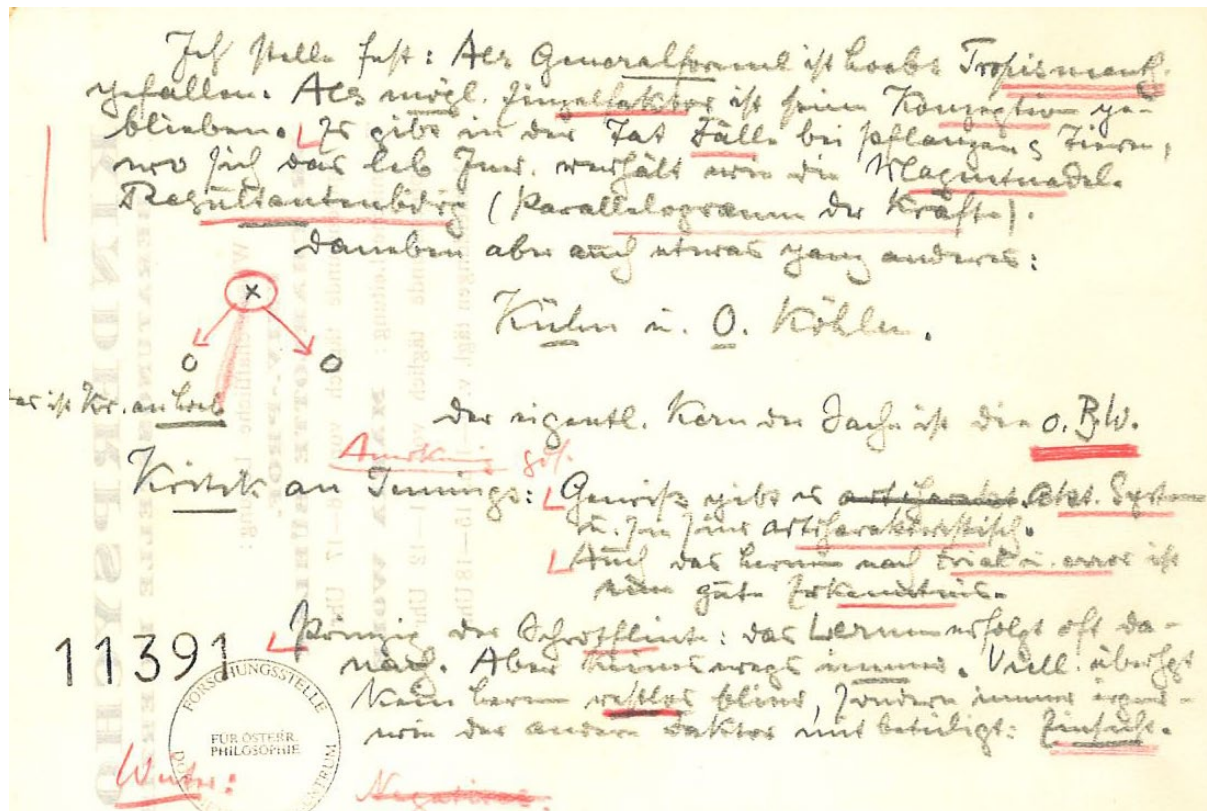 Ich stelle fest: Als Generalformel ist Loebs Tropismenth.
gefallen. Als mögl. Einzelfaktor ist seine Konzeption ge-
blieben. Es gibt in der Tat Fälle bei Pflanzen u Tieren,
wo sich das leb Ind. verhält wie die Magnetnadel.
Resultantenbildg (Parallelogramm der Kräfte).
Daneben aber auch etwas ganz anderes:
x
Kühn u. O. Köhler.
o o
das ist Kr. an Loeb
Der eigentl. Kern der Sache ist die o. B. W.
gds.
Kritik an Jennings: Gewiß gibt es Akt. System
u. In sind artcharakteristisch.
Auch das Lernen nach trial u. error ist
eine gute Erkenntnis.
11391
Prinzip der Schrotflinte: das Lernen erfolgt oft da-
nach. Aber keineswegs immer. Viell. überhpt
kein Lernen restlos blind, sondern immer irgend-
wie der andere Faktor mit beteiligt: Einsicht.
FORSCHUNGSSTELLE
FÜR ÖSTERR.
PHILOSOPHIE
Weiter: Negatives: